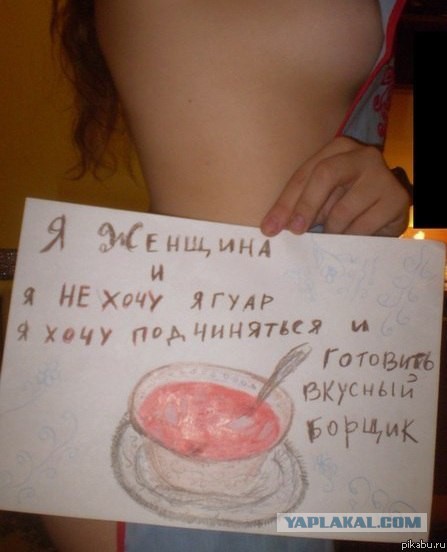 Я ЖЕНЩИНА
И
Я НЕ ХОЧУ ЯГУАР
Я ХОЧУ ПОДЧИНЯТЬСЯ И
ГОТОВИТЬ
ВКУСНЫЙ
БОРЩИК
YAPLAKAL.COM
pikabu.ru